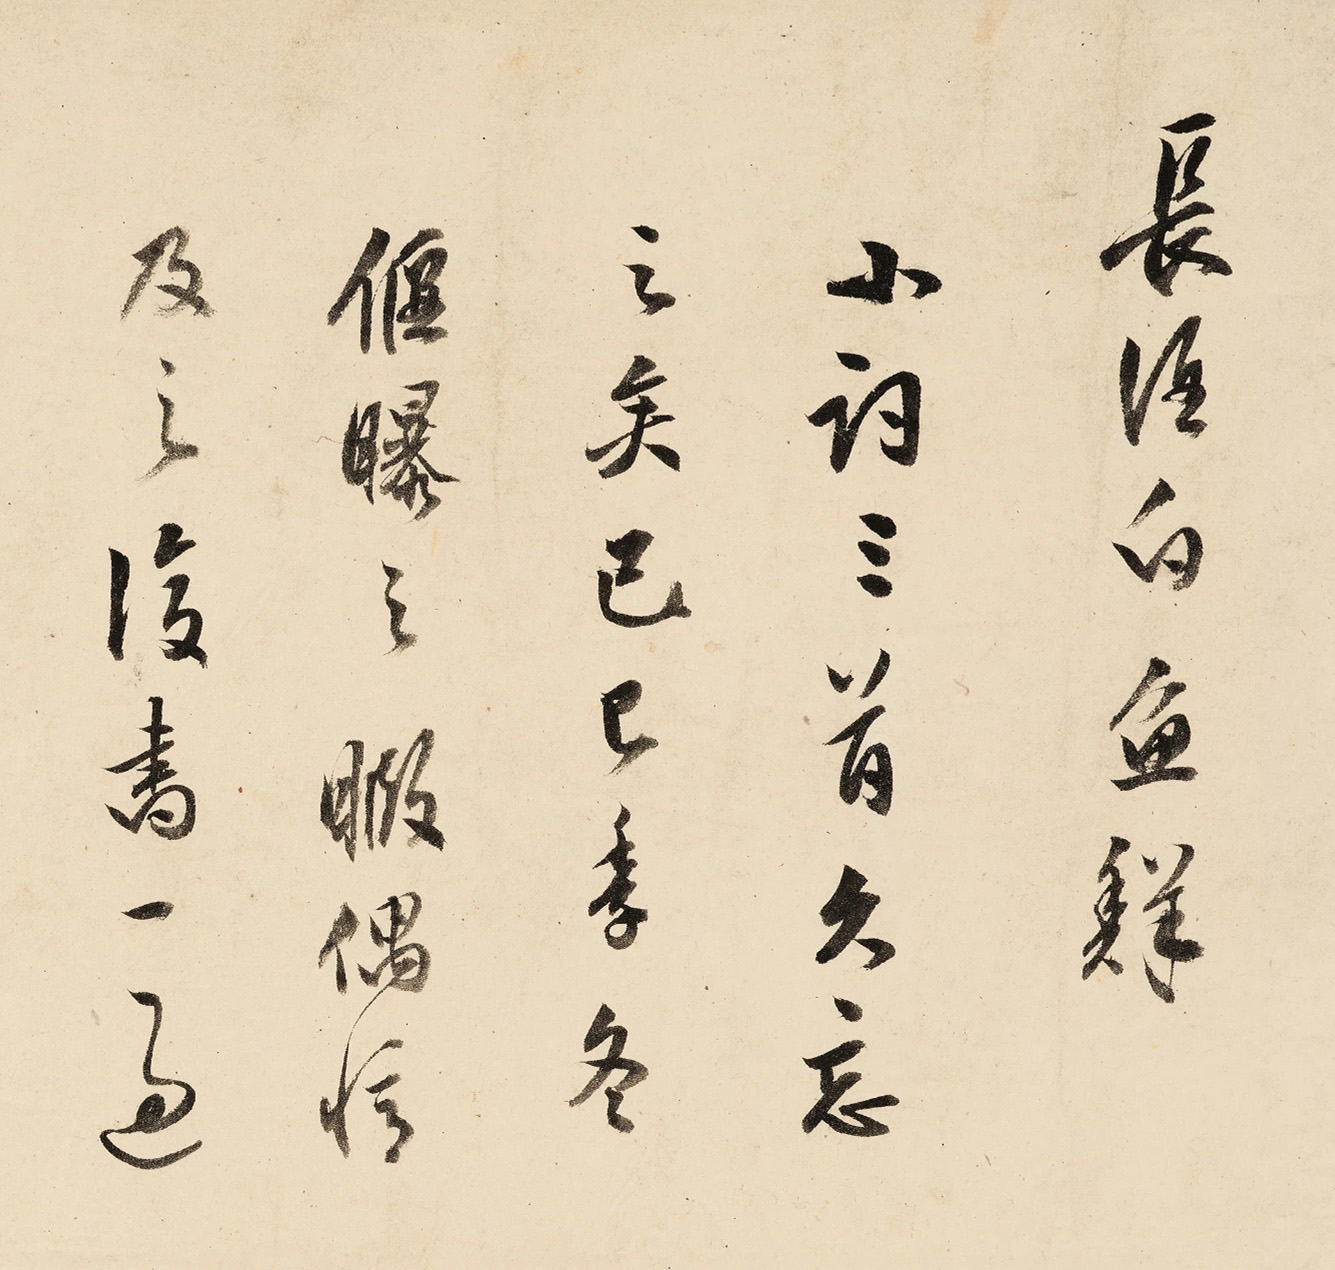 長淮白魚鮮
小詞三首久忘
之矣己巳季冬
偃曝之暇偶憶
及之復書一過